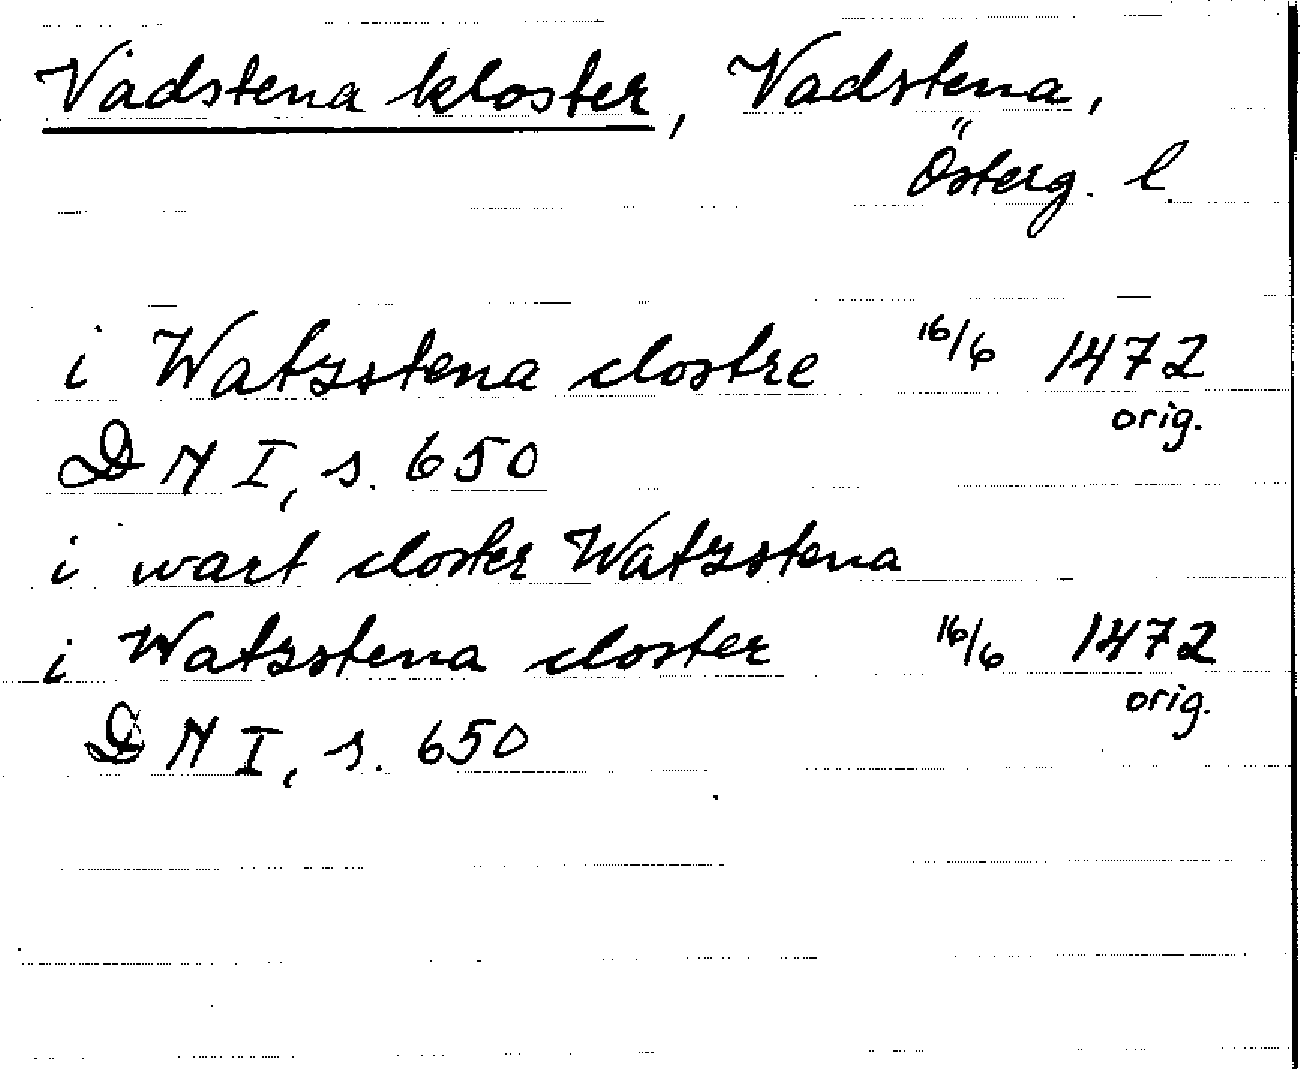 Vadstena kloster, Vadstena,
Österg. l.
i Watzstena clostre 16/6 1472
orig.
DN I, s. 650
i wart closter Watzstena
i Watzstena closter 16/6 1472
orig.
DN I, s. 650